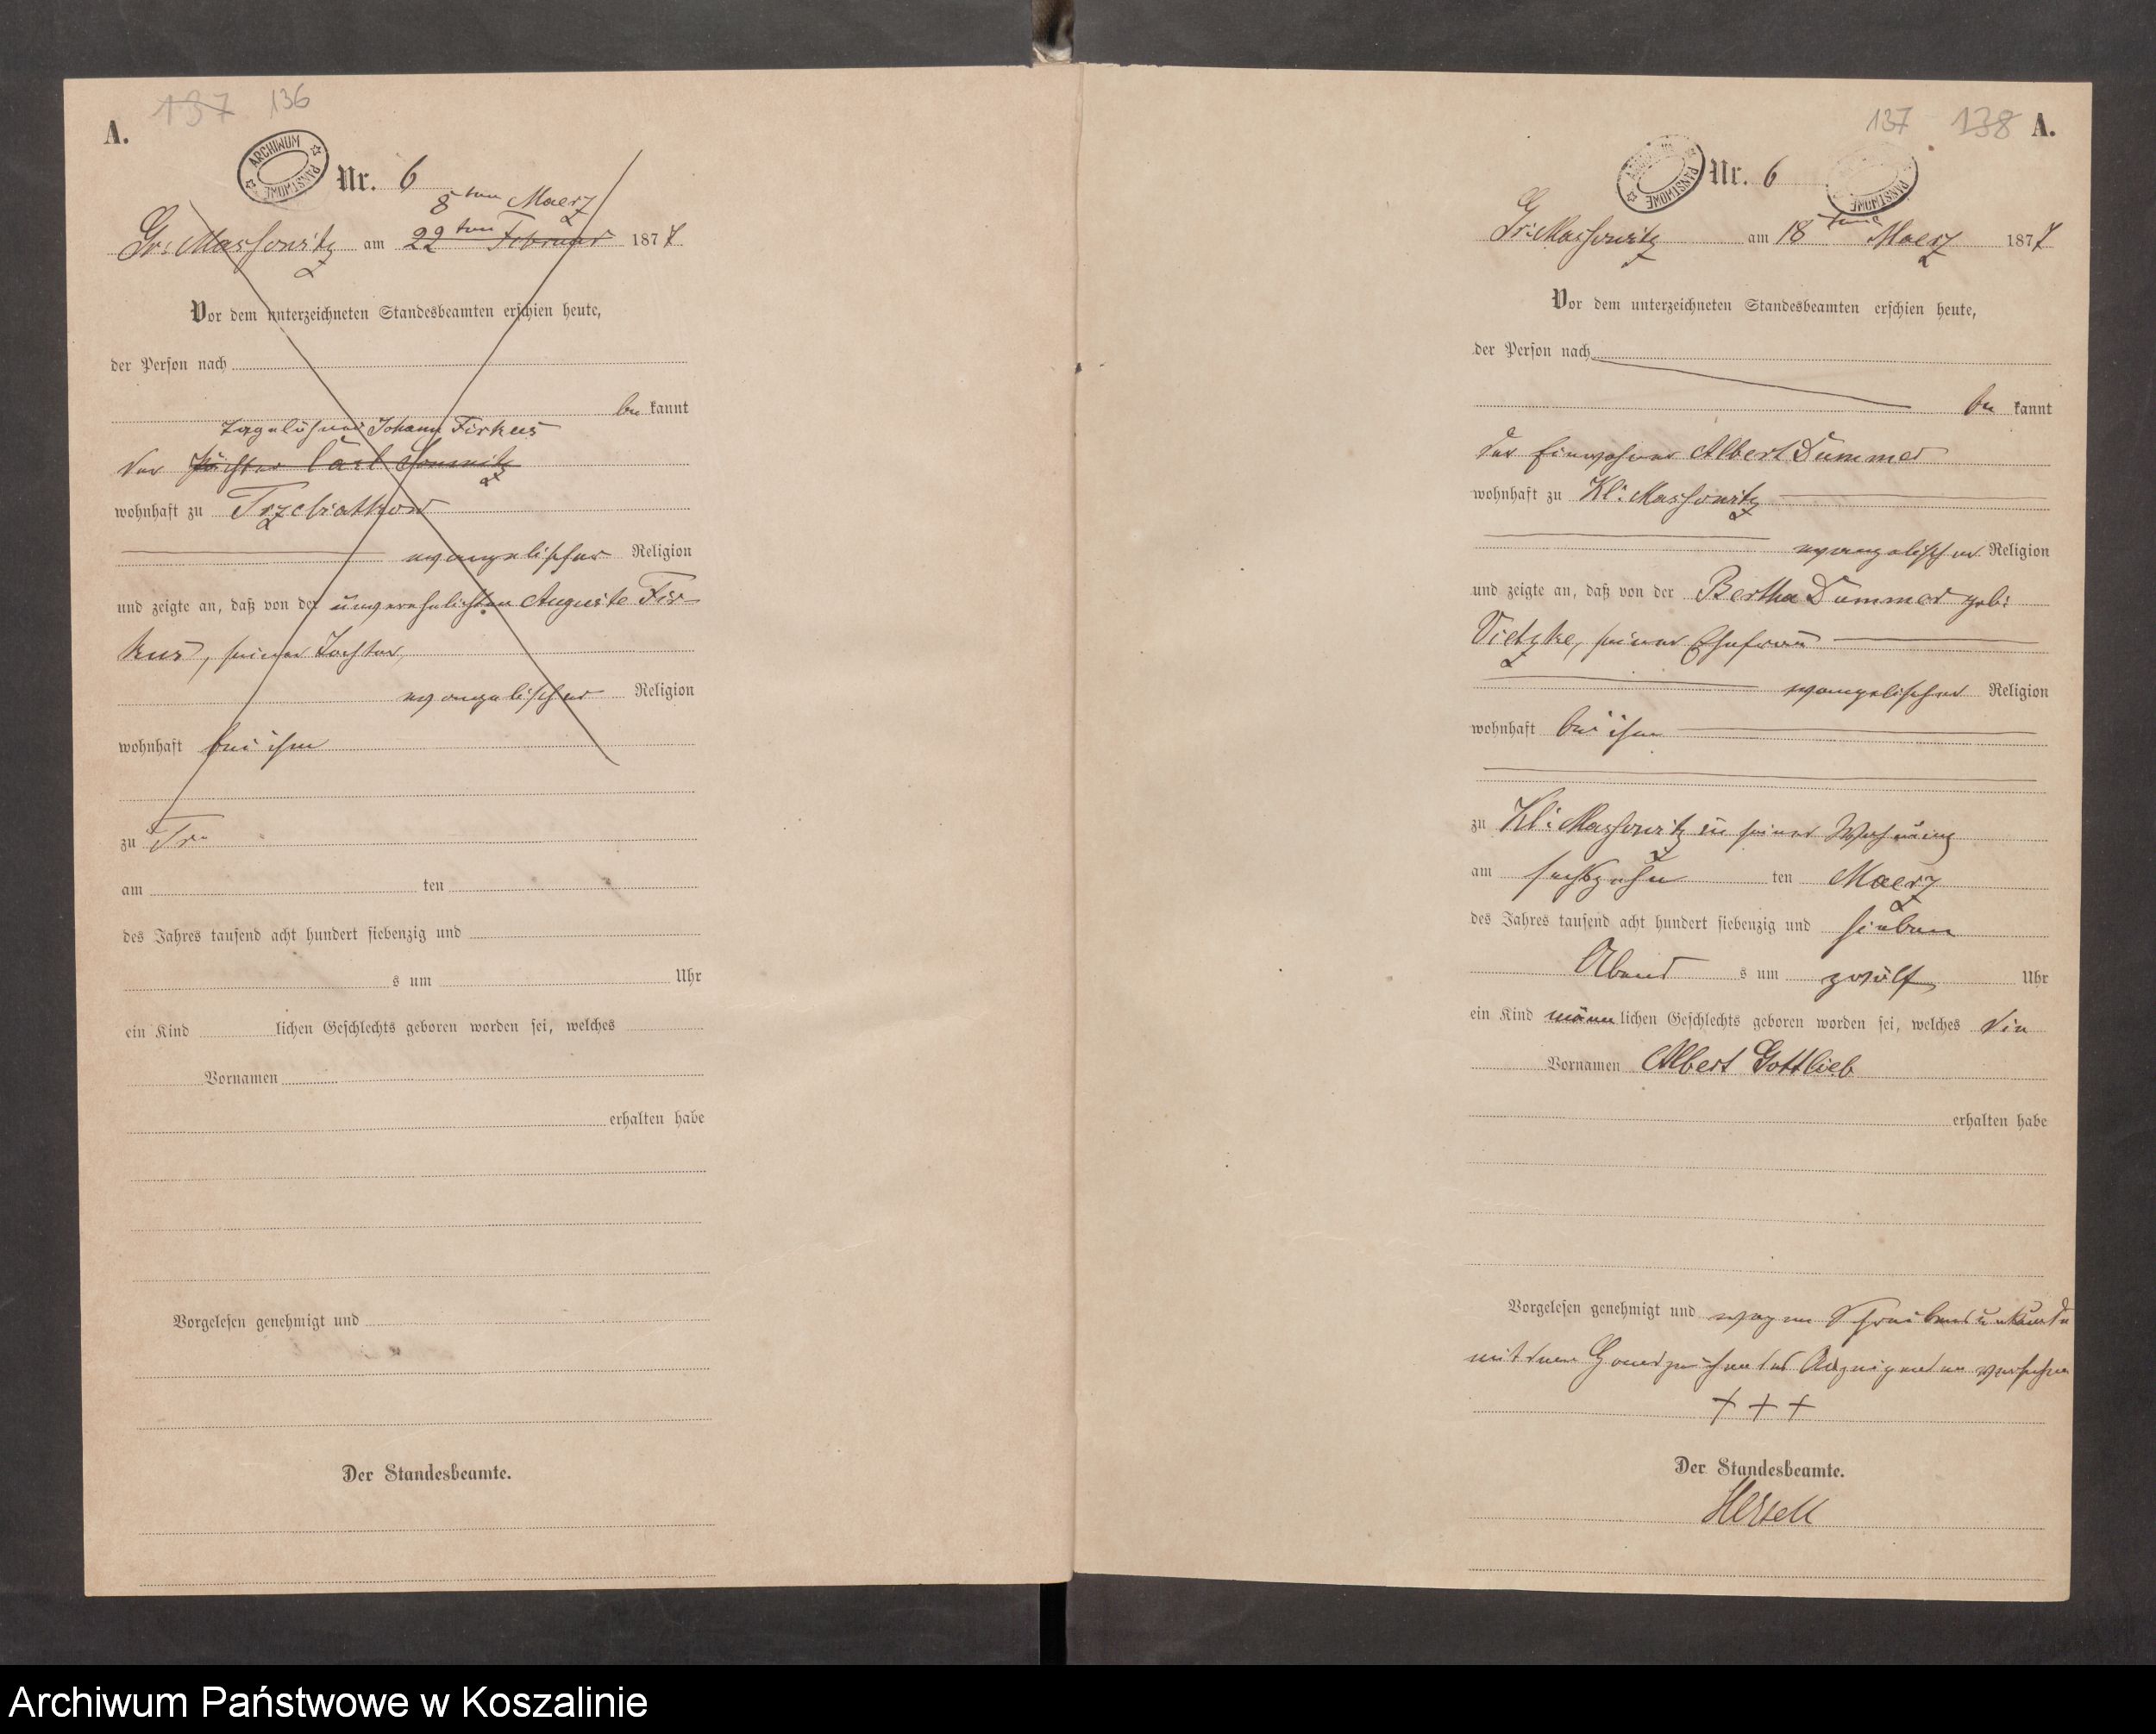 A.
137 136
ARCHIWUM PAŃSTWOWE
Nr. 6
8ten Maerz
Gr: Massowitz am 22ten Februar 1877
Vor dem unterzeichneten Standesbeamten erschien heute,
der Person nach
be kannt
Tagelöhner Johann Firkus
der Pächter Carl
wohnhaft zu Trzebiatkow
evangelischer Religion
und zeigte an, daß von der unverehelichten Auguste Fir-
kus, seiner Tochter,
evangelischer Religion
wohnhaft bei ihm
zu Tr
am ten
des Jahres tausend acht hundert siebenzig und
s um Uhr
ein Kind lichen Geschlechts geboren worden sei, welches
Vornamen
erhalten habe
Vorgelesen genehmigt und
Der Standesbeamte.
137 138 A.
ARCHIWUM PAŃSTWOWE
Nr. 6
PAŃSTWOWE
Gr: Massowitz am 18ten Maerz 1877
Vor dem unterzeichneten Standesbeamten erschien heute,
der Person nach
be kannt
der Einwohner Albert Dummer
wohnhaft zu Kl: Massowitz
evangelischer Religion
und zeigte an, daß von der Bertha Dummer geb:
Vietzke, seiner Ehefrau
evangelischer Religion
wohnhaft bei ihm
zu Kl: Massowitz in seiner Wohnung
am sechszehn ten Maerz
des Jahres tausend acht hundert siebenzig und sieben
Abend s um zwölf Uhr
ein Kind männ lichen Geschlechts geboren worden sei, welches die
Vornamen Albert Gottlieb
erhalten habe
Vorgelesen genehmigt und wegen Schreibensunkunde
mit dem Handzeichen des Anzeigenden versehen
+ + +
Der Standesbeamte.
Hersell
Archiwum Państwowe w Koszalinie